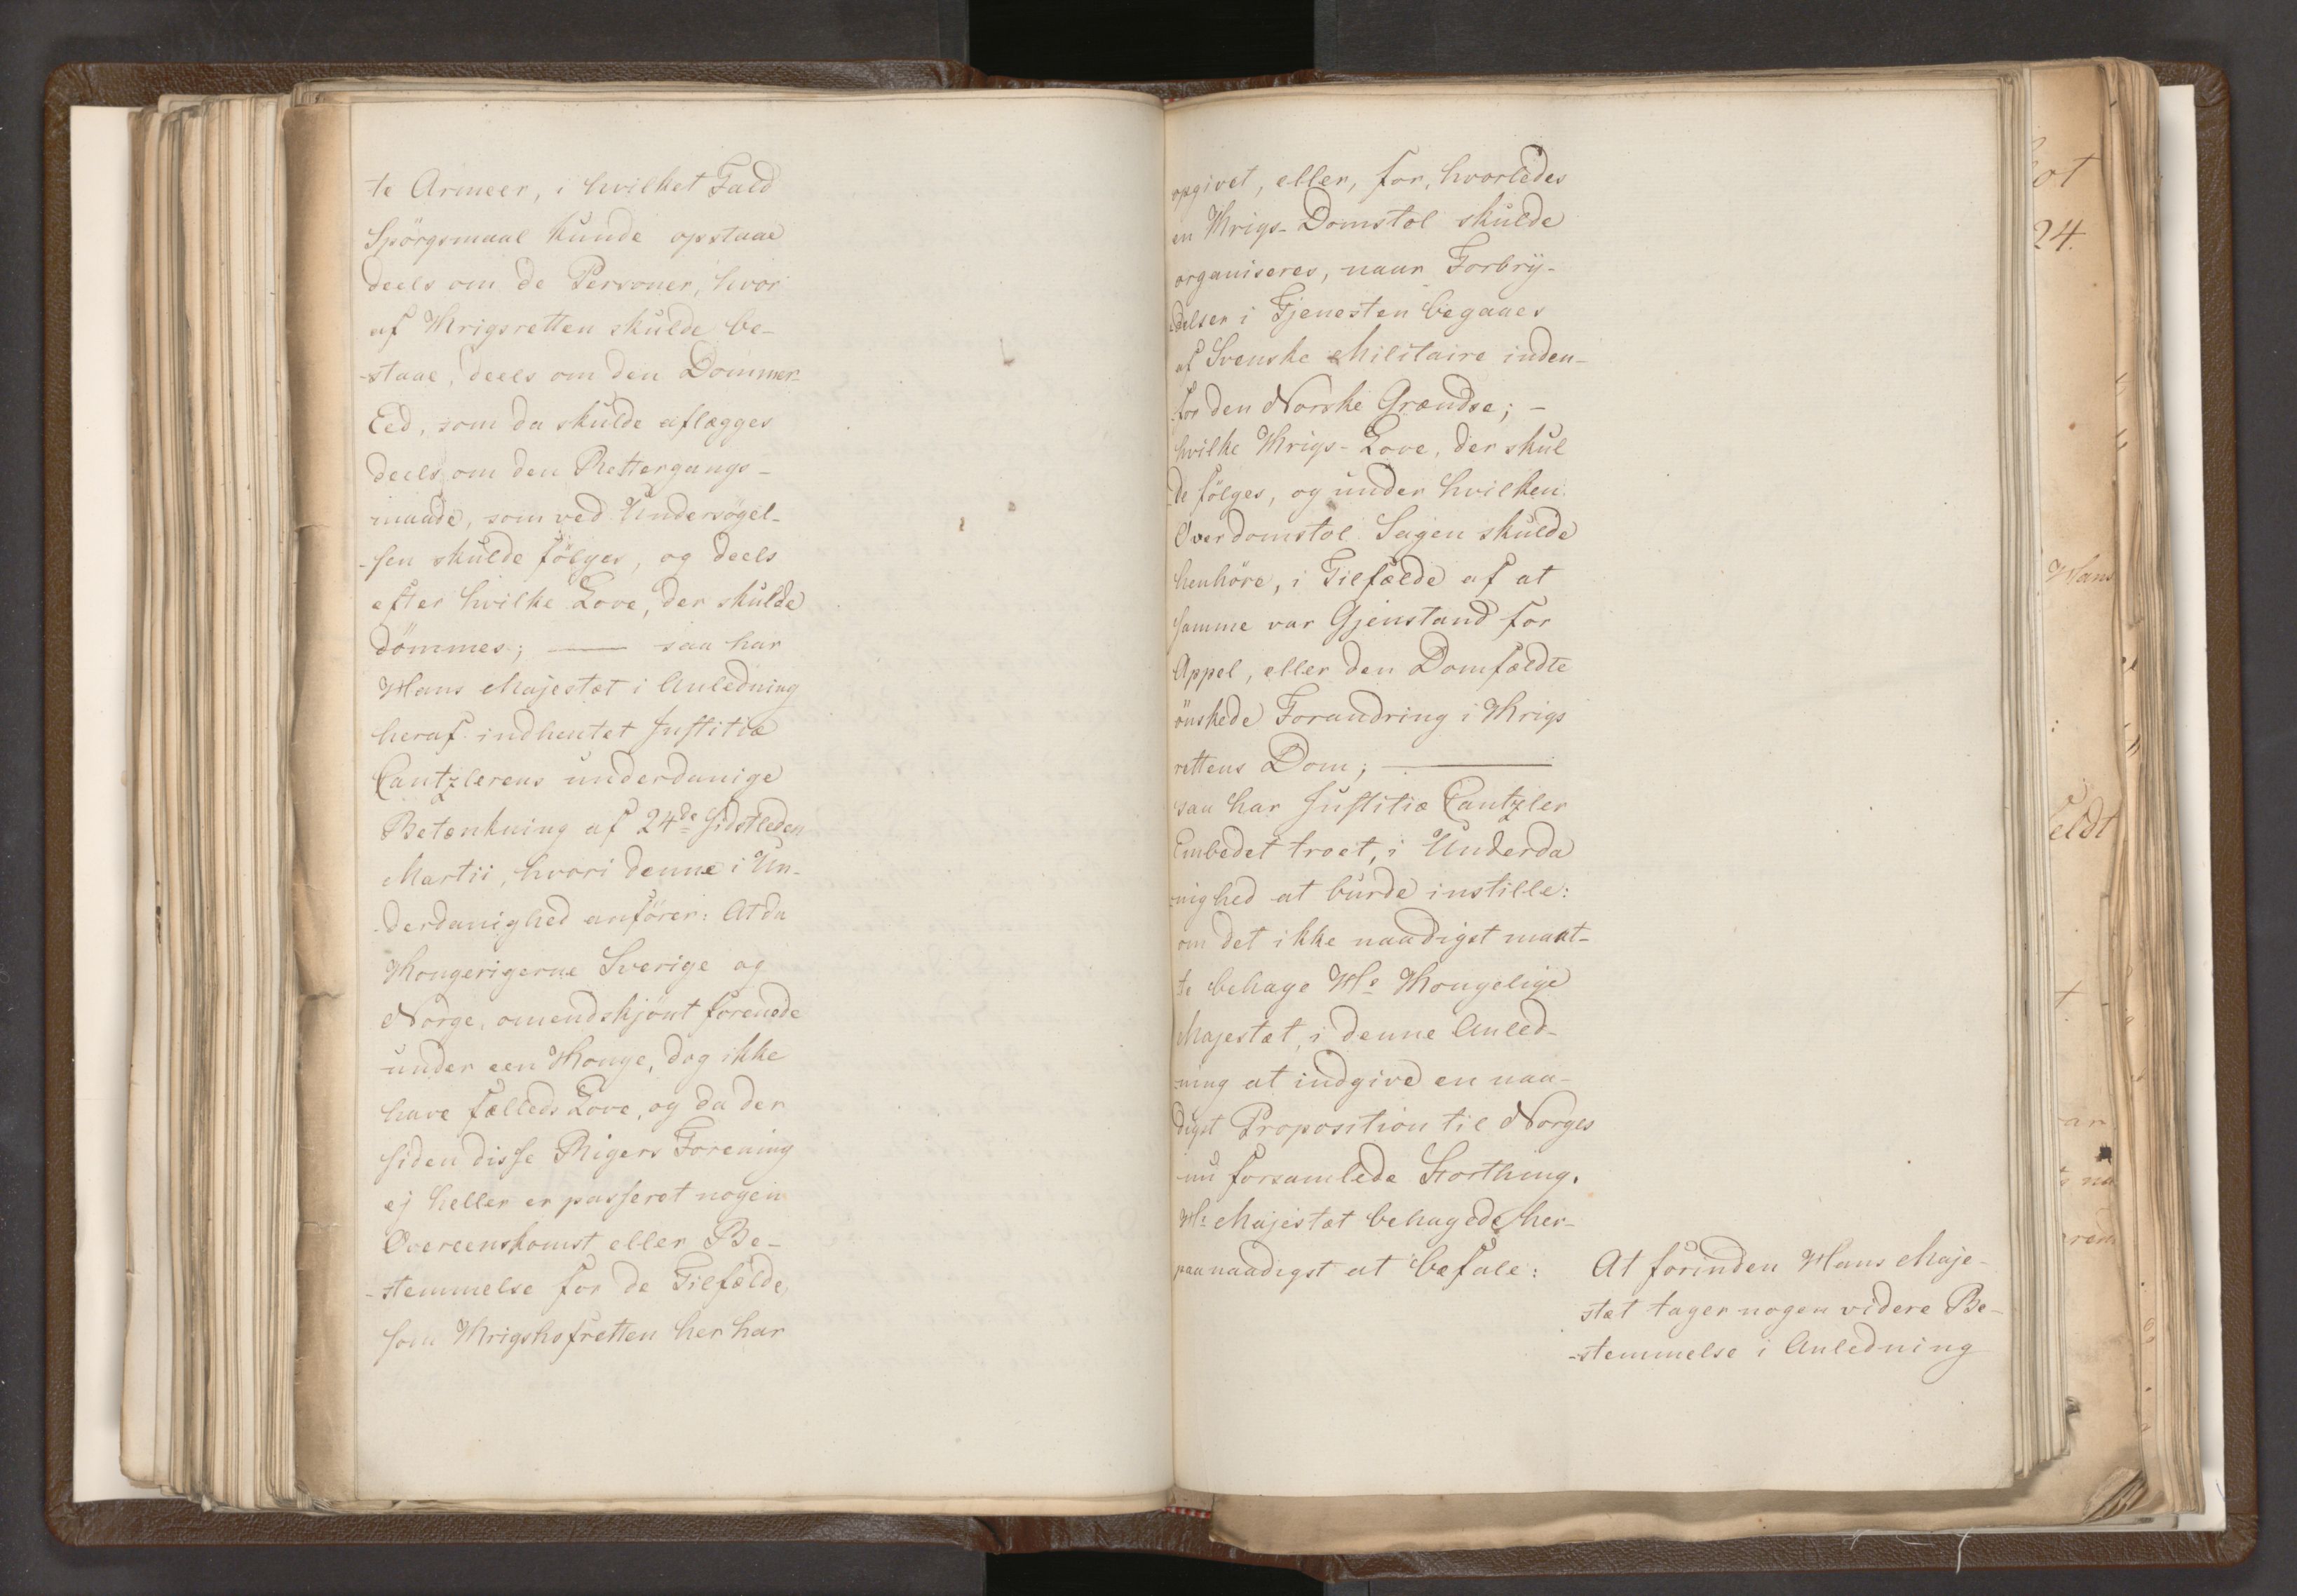 te Armeer, i hvilket Fald
Spörgsmaal kunde opstaae
deels om de Personer, hvor
af Krigsretten skulde be-
-staae, deels om den Dommer-
Eed, som da skulde aflægges
deels om den Rettergangs-
maade, som ved Undersögel-
-sen skulde fölges, og deels
efter hvilke Love, der skulde
dömmes; — saa har
Hans Majestæt i Anledning
heraf indhentet Justitiæ
Cantzlerens underdanige
Betænkning af 24de sidstleden
Martii, hvori denne i Un-
derdanighed anförer: At da
Kongerigerne Sverige og
Norge, omendskjönt forenede
under een Konge, dog ikke
have fælleds Love, og da der
siden disse Rigers Forening
ej heller er passeret nogen
Overeenskomst eller Be-
-stemmelse for de Tilfælde,
som Krigshofretten her har
opgivet, eller, for, hvorledes
en Krigs-Domstol skulde
organiseres, naar Forbry-
delser i Tjenesten begaaes
af Svenske Militaire inden-
for den Norske Grændse; -
hvilke Krigs-Love, der skul
de fölges, og under hvilken
Overdomstol Sagen skulde
henhöre, i Tilfælde af at
samme var Gjenstand for
Appel, eller den Domfældte
önskede Forandring i Krigs
rettens Dom; —
saa har Justitiæ Cantzler
Embedet troet, i Underda
nighed at burde instille:
om det ikke naadigst maat-
te behage Hs Kongelige
Majestæt, i denne Anled-
ning at indgive en naa-
digst Proposition til Norges
nu forsamlede Storthing.
Hs Majestæt behagede her-
paa naadigst at befale:
At forinden Hans Maje-
stæt tager nogen videre Be-
-stemmelse i Anledning
ot
24.
Hans
eldt